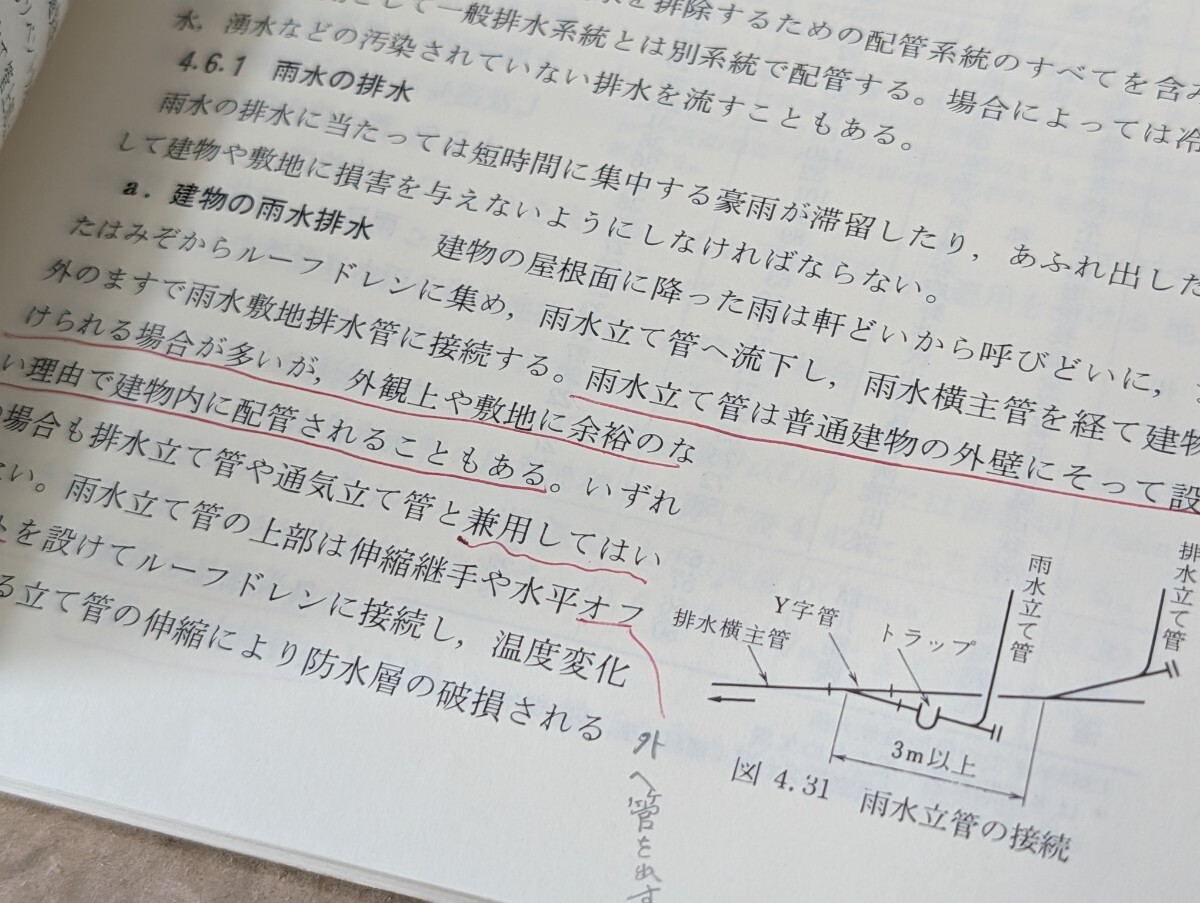 を排除するための配管系統のすべてを含み
して一般排水系統とは別系統で配管する。場合によっては冷
水，湧水などの汚染されていない排水を流すこともある。
4.6.1 雨水の排水
雨水の排水に当たっては短時間に集中する豪雨が滞留したり，あふれ出した
して建物や敷地に損害を与えないようにしなければならない。
a. 建物の雨水排水 建物の屋根面に降った雨は軒どいから呼びどいに，
たはみぞからルーフドレンに集め，雨水立て管へ流下し，雨水横主管を経て建物
外のますで雨水敷地排水管に接続する。雨水立て管は普通建物の外壁にそって設
けられる場合が多いが，外観上や敷地に余裕のな
い理由で建物内に配管されることもある。いずれ
場合も排水立て管や通気立て管と兼用してはい
い。雨水立て管の上部は伸縮継手や水平オフ
を設けてルーフドレンに接続し，温度変化
る立て管の伸縮により防水層の破損される
外へ管を出す
排水横主管
Y字管
トラップ
雨水立て管
排水立て管
3m以上
図 4.31 雨水立管の接続